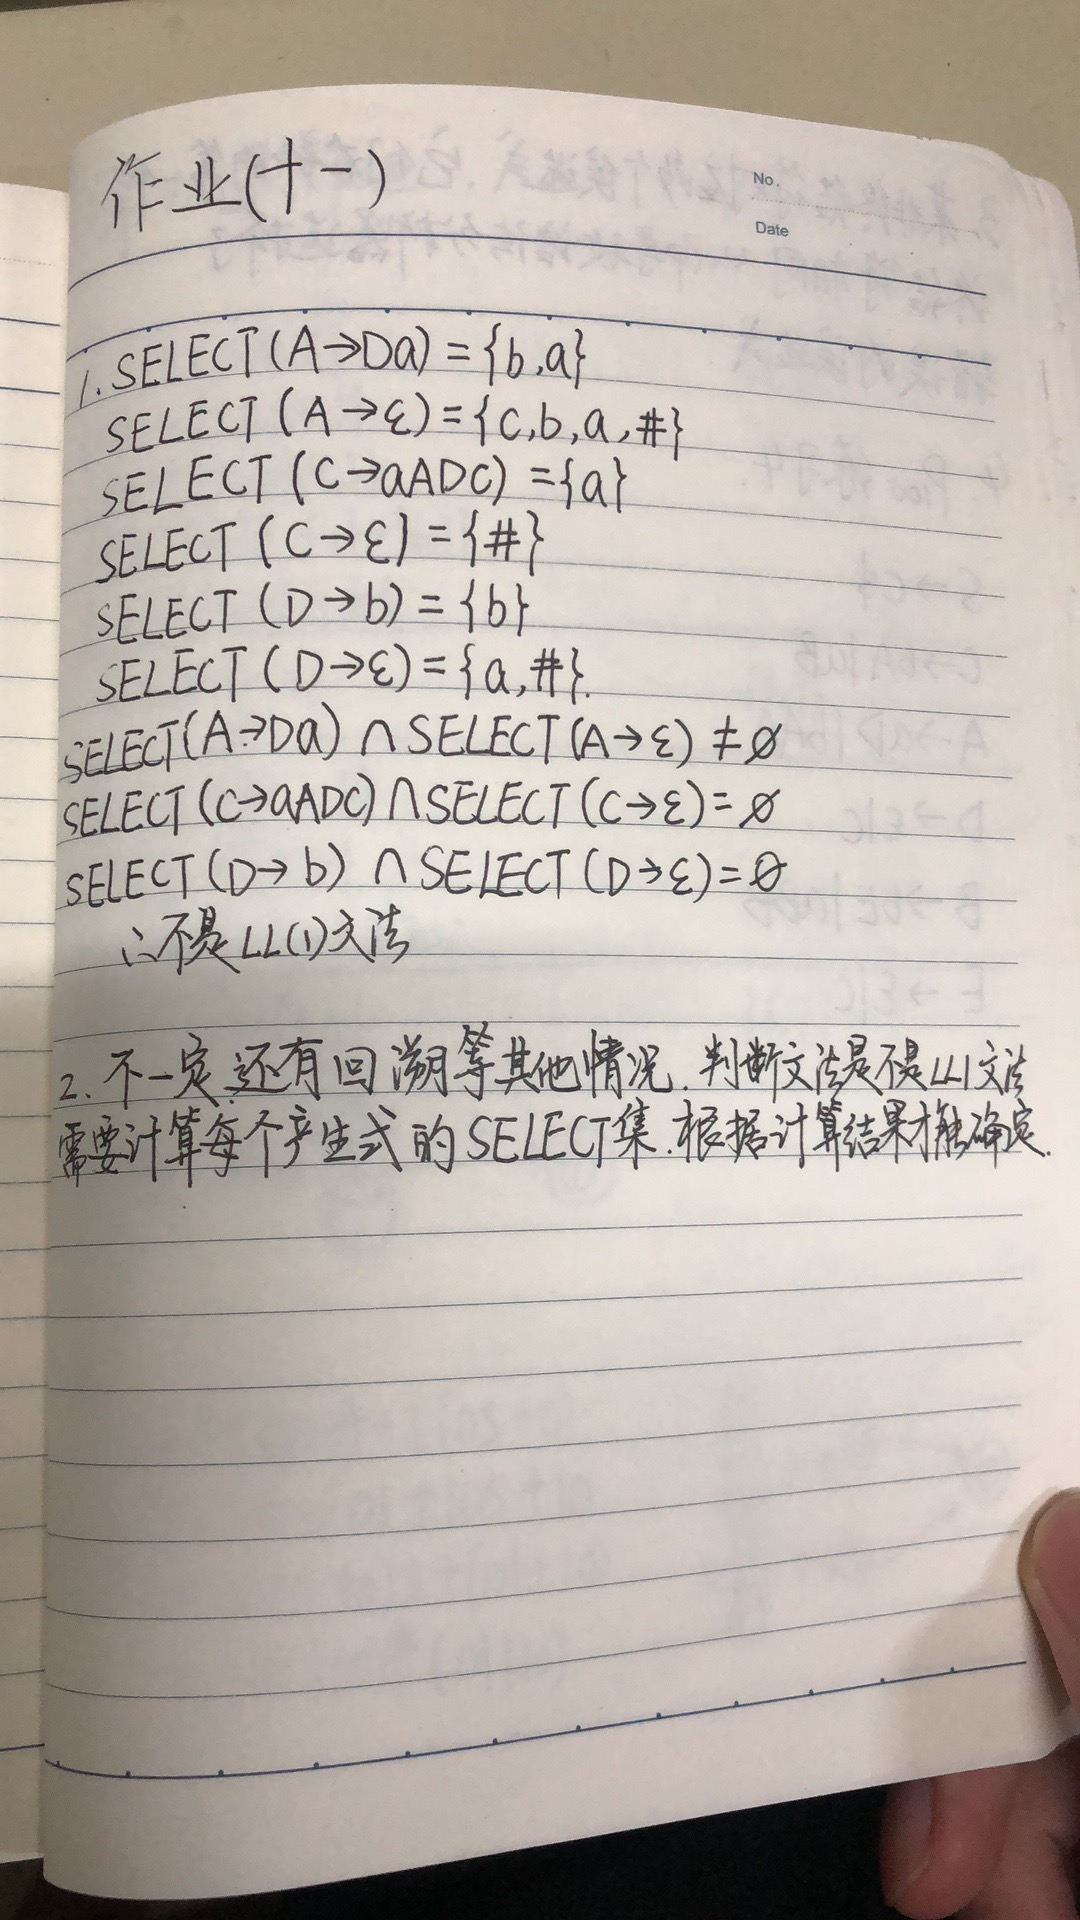 作业(十一)
No.
Date
1. SELECT(A→Da) = {b,a}
SELECT(A→ε) = {c,b,a,#}
SELECT(C→aADC) = {a}
SELECT(C→ε) = {#}
SELECT(D→b) = {b}
SELECT(D→ε) = {a,#}.
SELECT(A→Da) ∩ SELECT(A→ε) ≠ ∅
SELECT(C→aADC) ∩ SELECT(C→ε) = ∅
SELECT(D→b) ∩ SELECT(D→ε) = ∅
∴不是LL(1)文法
2. 不一定,还有回溯等其他情况.判断文法是不是LL1文法
需要计算每个产生式的SELECT集.根据计算结果才能确定.